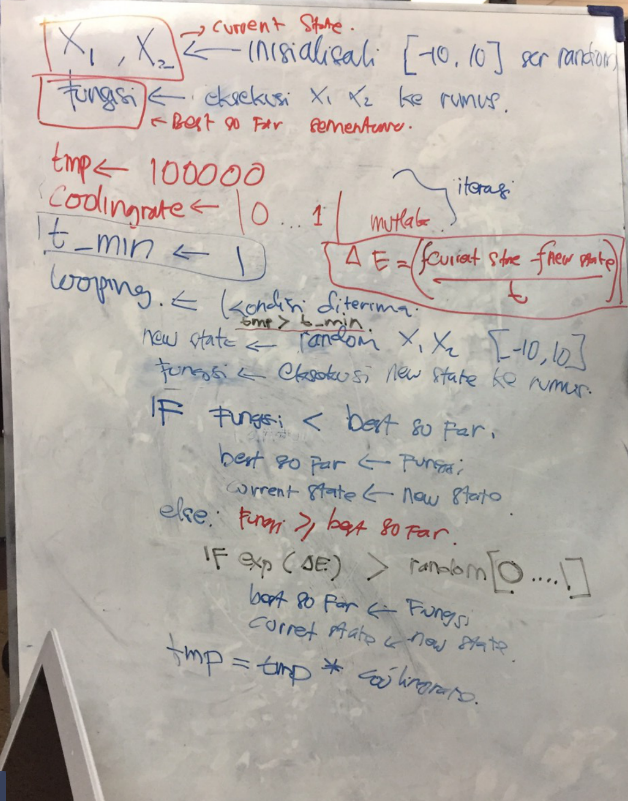 → Current State.
X1, X2 ← inisialisasi [-10, 10] scr random
Fungsi ← eksekusi X1 X2 ke rumus.
← Best so Far sementara.
tmp ← 100000
Coolingrate ← |0 ... 1|
iterasi
mutlak
t_min ← 1
Δ E = (fcurrent state fnew state / t)
looping. ← (kondisi diterima.
tmp > t_min.
new state ← random X1 X2 [-10, 10]
Fungsi ← eksekusi new state ke rumus.
IF Fungsi < best so Far.
best so Far ← Fungsi
current state ← new state
else: Fungsi ≥ best so Far.
IF exp (ΔE) > random [0....1]
best so Far ← Fungsi
curret state ← new state.
tmp = tmp * coolingrate.